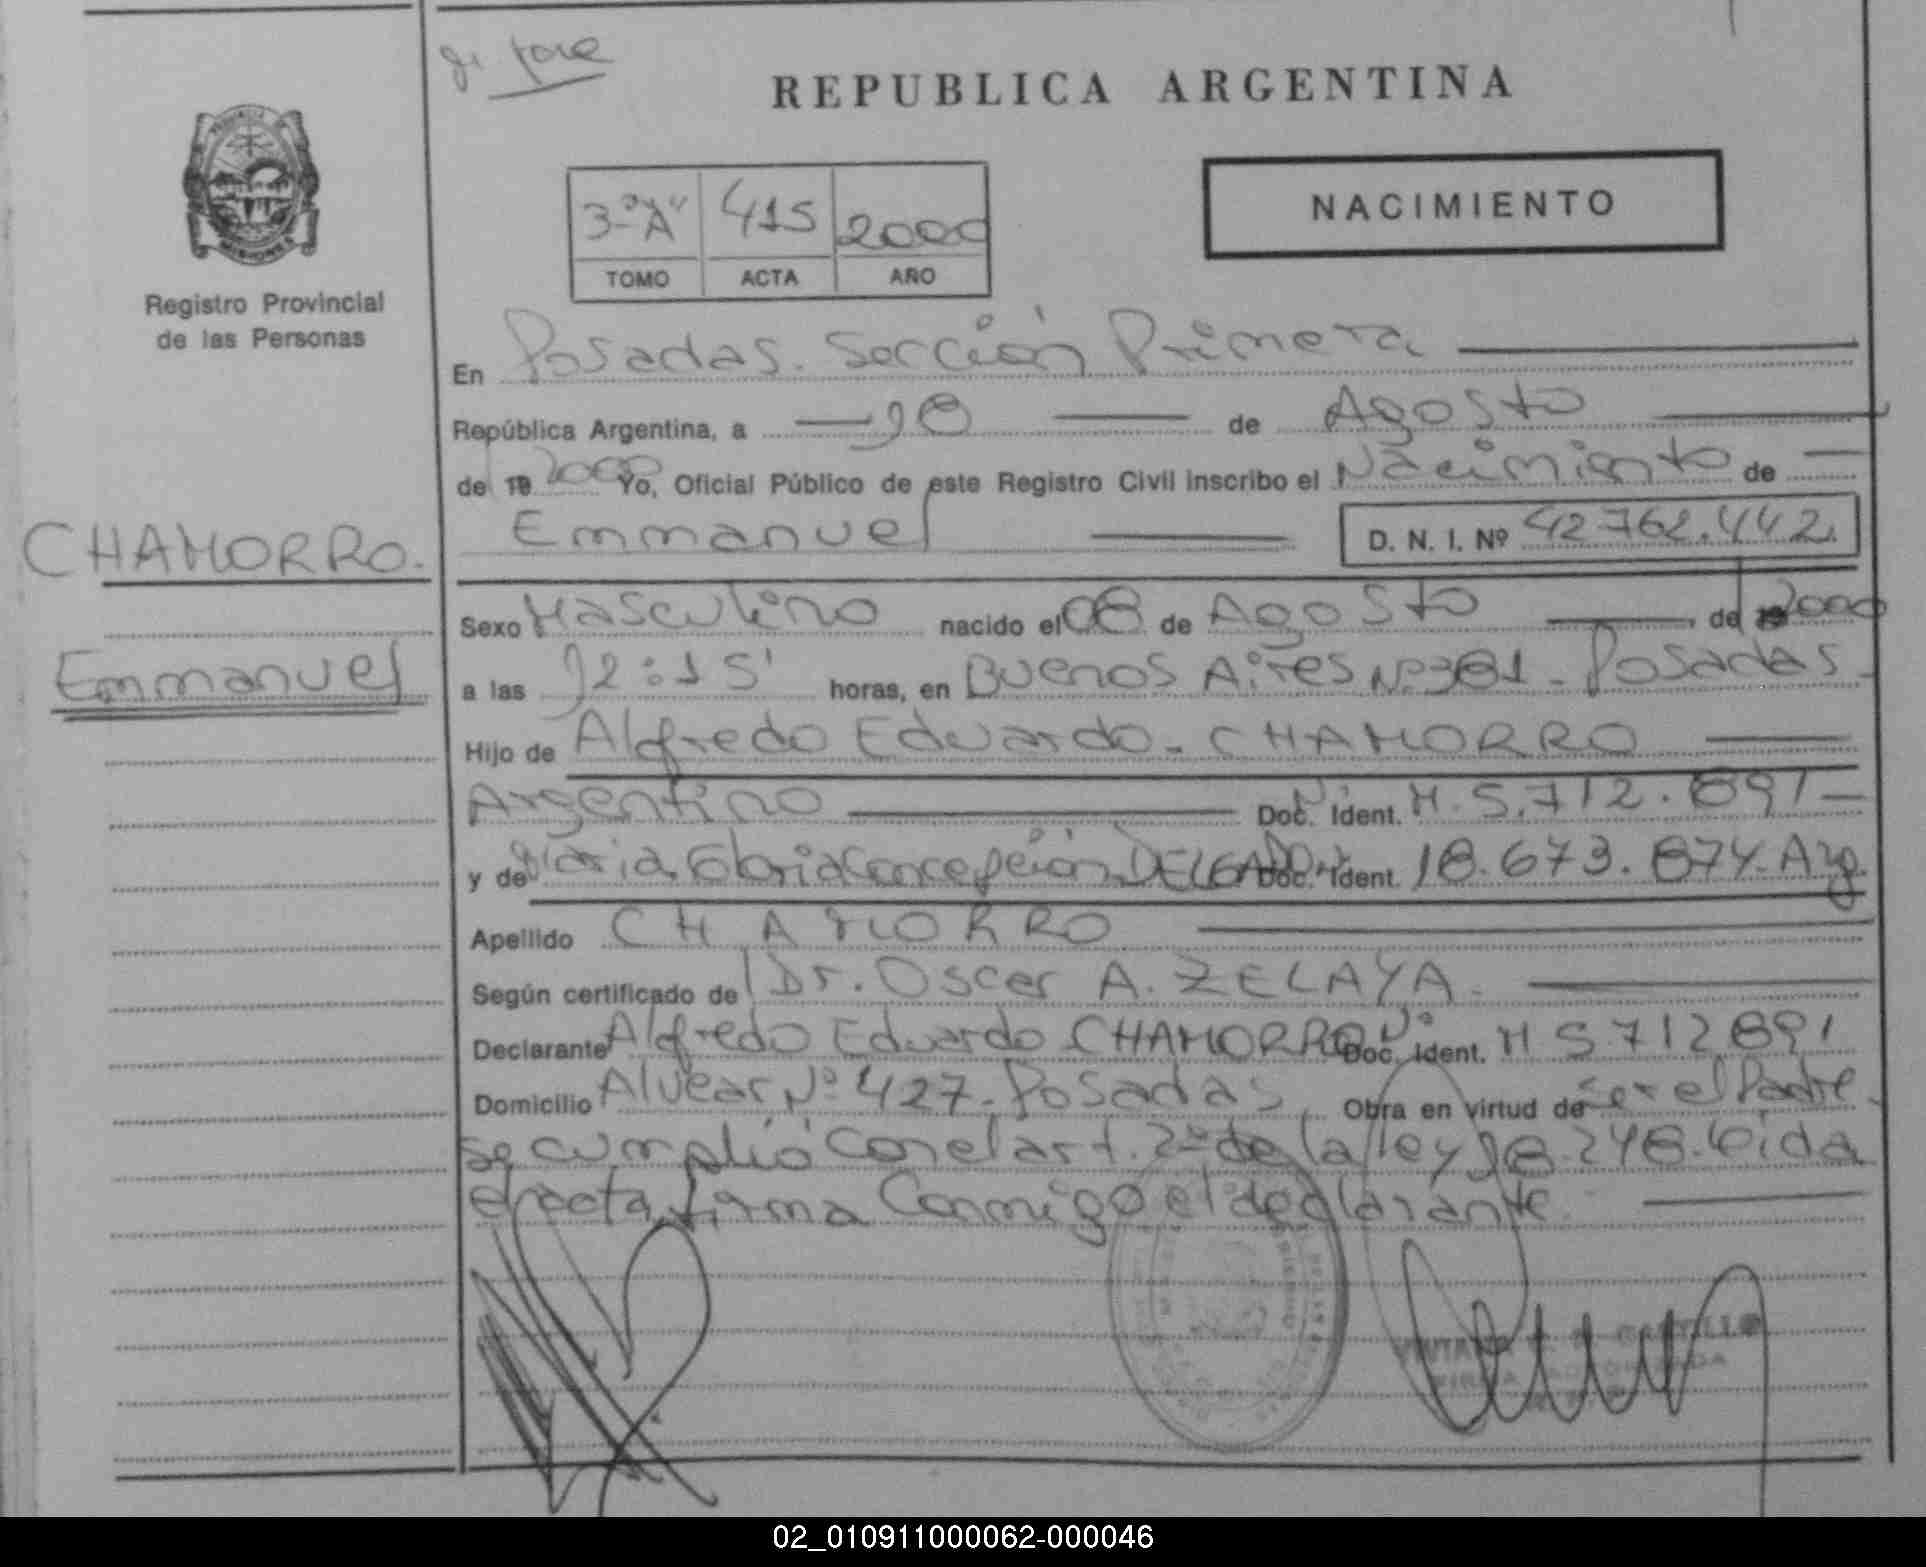 REPUBLICA ARGENTINA
NACIMIENTO
MISIONES
Registro Provincial
de las Personas
3-"A" 415 2000
TOMO ACTA AÑO
En Posadas. Sección Primera
República Argentina, a 10 de Agosto
de 19 2000 Yo, Oficial Público de este Registro Civil inscribo el Nacimiento de
Emmanuel D. N. I. Nº 42 762.442.
CHAMORRO.
Emmanuel
Sexo Masculino nacido el 08 de Agosto de 19 2000
a las 12:15' horas, en Buenos Aires Nº 381 - Posadas
Hijo de Alfredo Eduardo - CHAMORRO
Argentino Doc. Ident. M. 5.712.891
y de María Gloria Concepción DELGADO Doc. Ident. 18.673.874. Arg.
Apellido CHAMORRO
Según certificado de Dr. Oscar A. ZELAYA.
Declarante Alfredo Eduardo CHAMORRO Nº Doc. Ident. M 5712891
Domicilio Alvear Nº 427. Posadas Obra en virtud de ser el Padre.
se cumplió con el art. 2º de la ley 18.248. Leida
el acta, firma conmigo el declarante.
CASTILLO
02_010911000062-000046